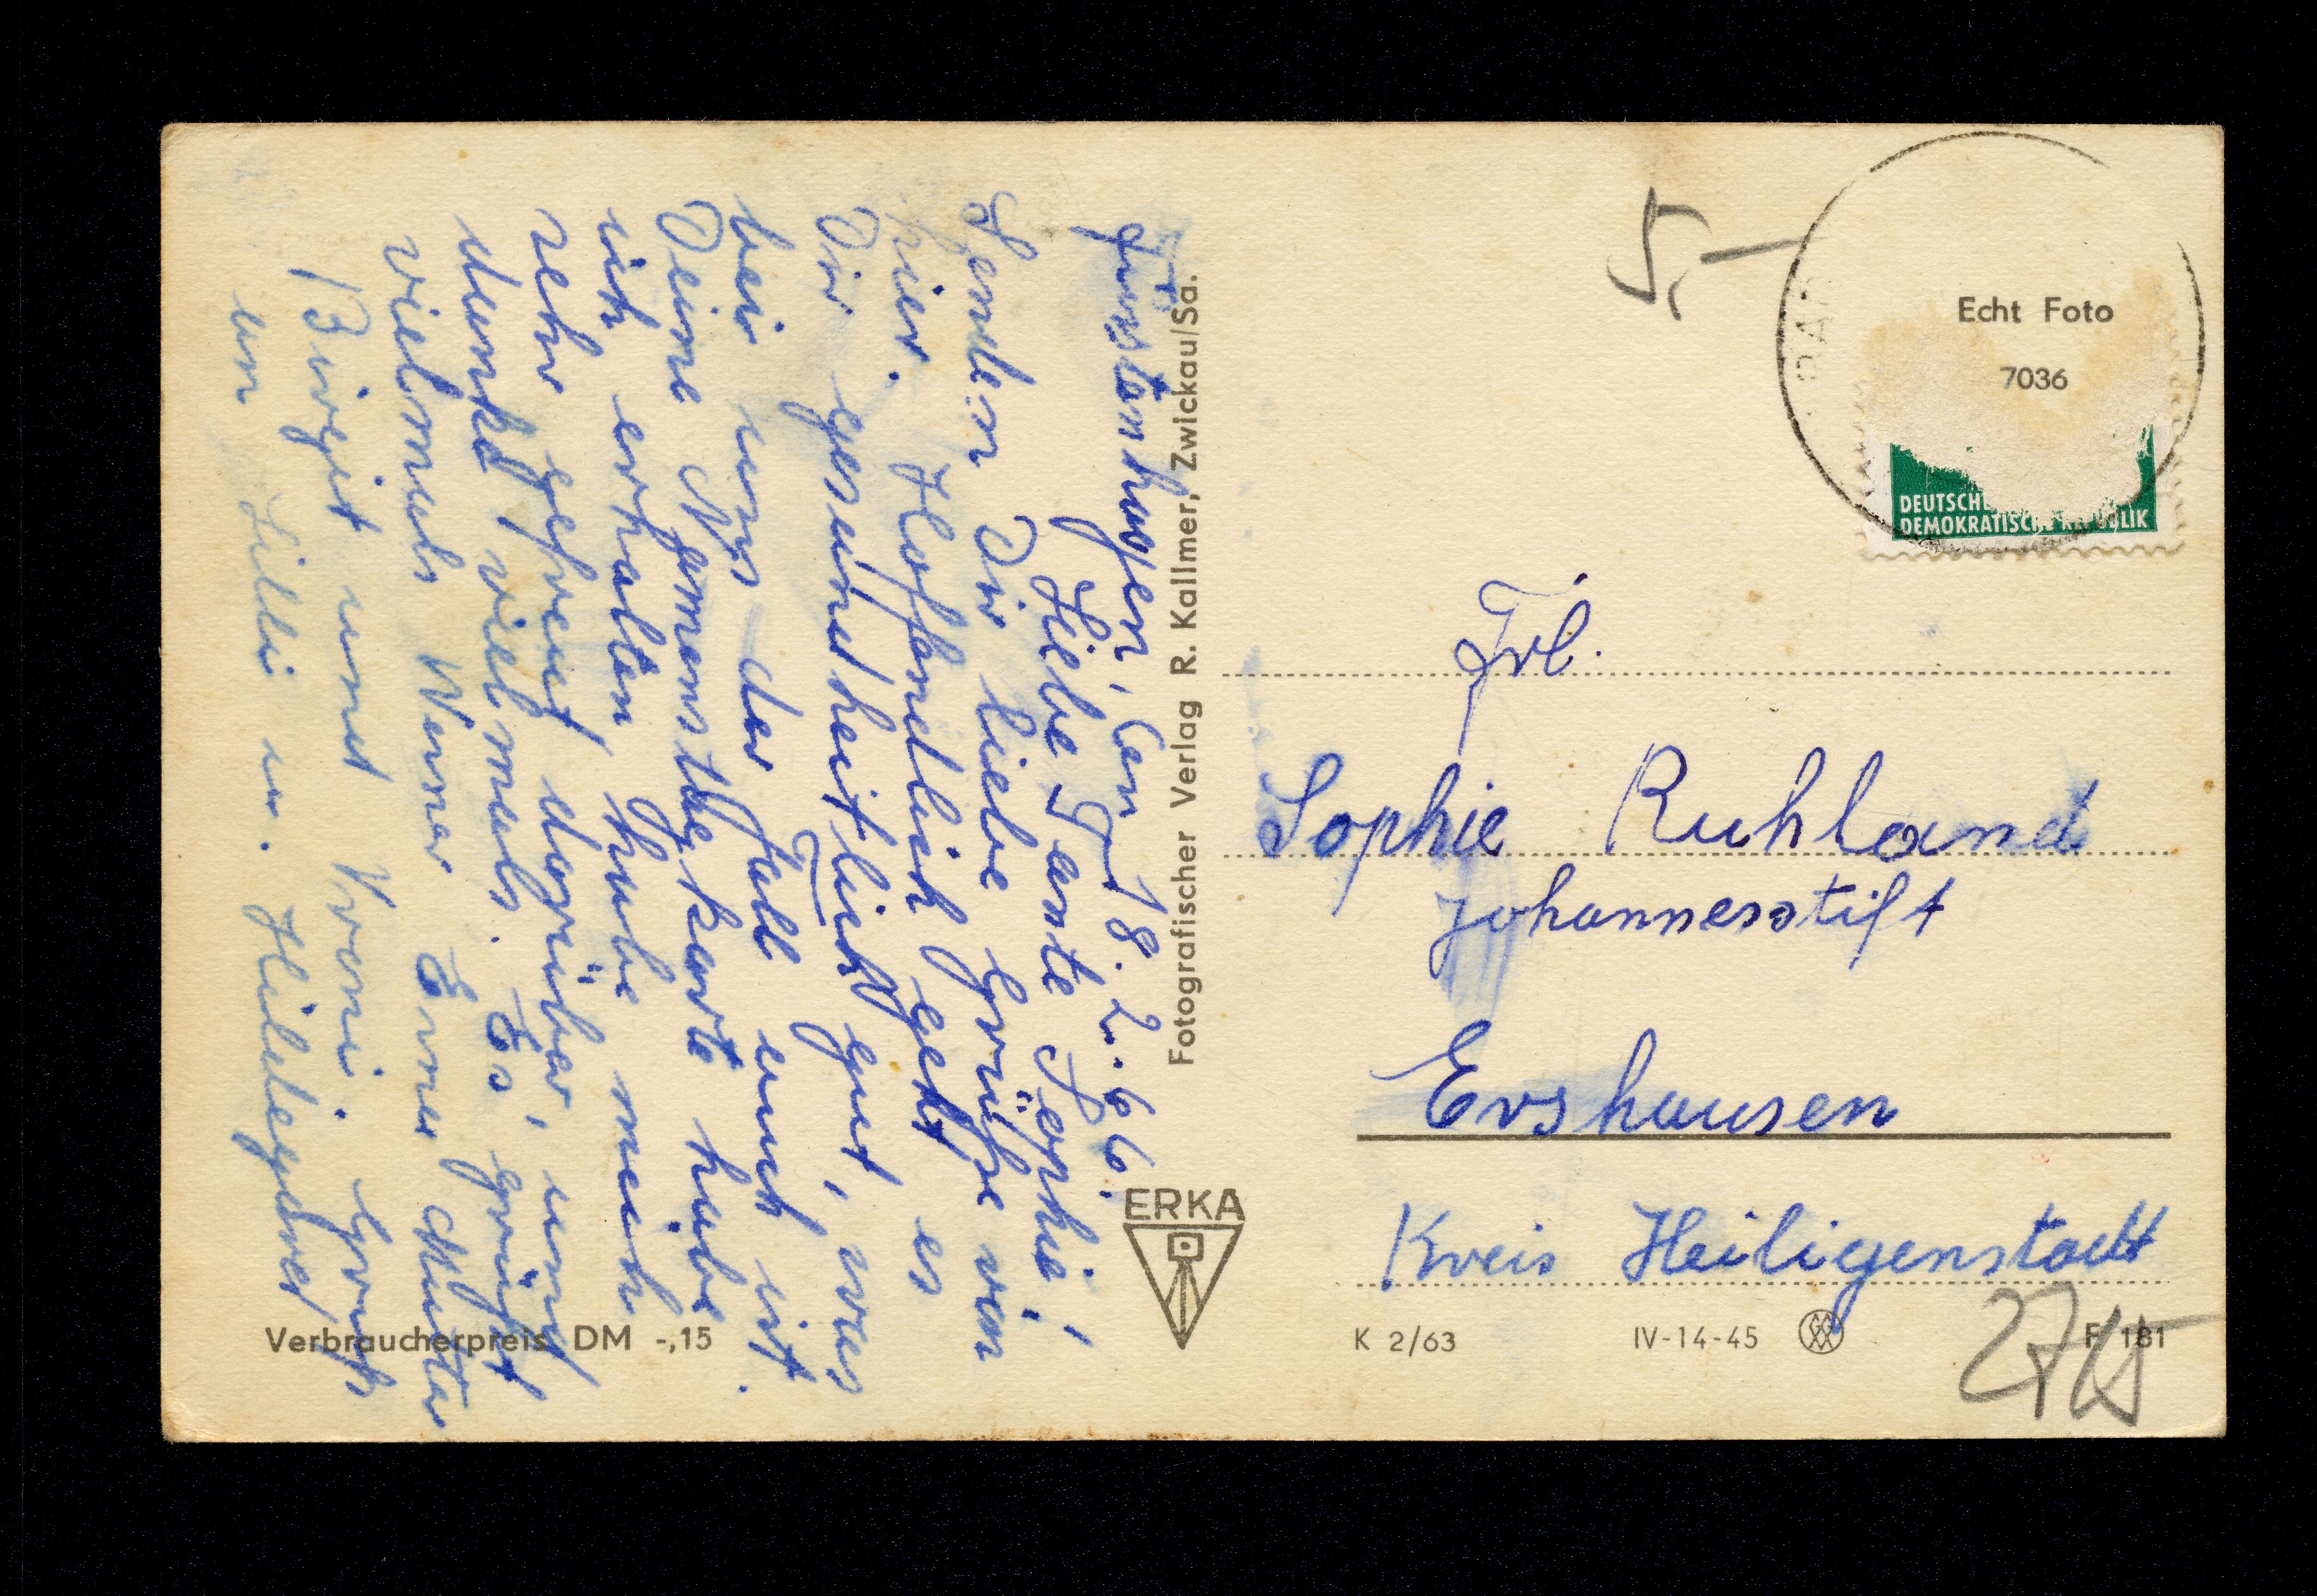 Fürstenhagen, den 18.2.66.
Liebe Tante Sophie!
Senden Dir liebe Grüße von
hier. Hoffendlich geht es
Dir gesundheitlich gut, was
bei uns der Fall auch ist.
Deine Namenstagkarte habe
ich erhalten, habe mich
sehr gefreut darüber, und
danke vielmals. Es grüßt
vielmals Werner Erna Mutter
Birgit und Vroni. Gruß
an Lilli u. Hildegard
Fotografischer Verlag R. Kallmer, Zwickau/Sa.
ERKA
Verbraucherpreis DM -,15
5,-
Echt Foto
7036
DEUTSCHE
DEMOKRATISCHE REPUBLIK
Frl.
Sophie Ruhland
Johannesstift
Ershausen
Kreis Heiligenstadt
K 2/63 IV-14-45 F 181